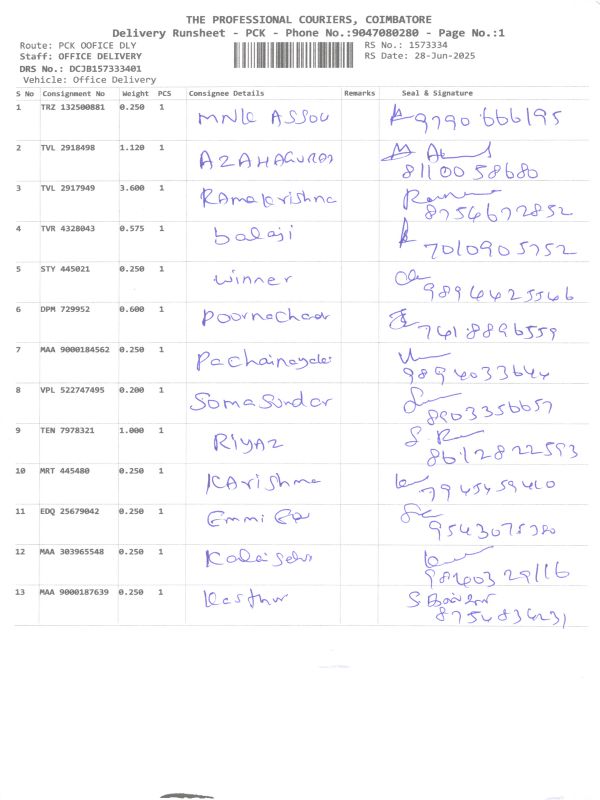 THE PROFESSIONAL COURIERS, COIMBATORE
Delivery Runsheet - PCK - Phone No.:9047080280 - Page No.:1
Route: PCK OOFICE DLY
RS No.: 1573334
Staff: OFFICE DELIVERY
RS Date: 28-Jun-2025
DRS No.: DCJB157333401
Vehicle: Office Delivery
S No Consignment No Weight PCS Consignee Details Remarks Seal & Signature
1 TRZ 132500881 0.250 1 MNLC ASSOU 9790 666195
2 TVL 2918498 1.120 1
81100 58680
3 TVL 2917949 3.600 1 RAmakrishna
8754672852
4 TVR 4328043 0.575 1 balaji
7010905752
5 STY 445021 0.250 1 winner
9894425546
6 DPM 729952 0.600 1
7418896559
7 MAA 9000184562 0.250 1
9894033644
8 VPL 522747495 0.200 1 Somasundar
8903356657
9 TEN 7978321 1.000 1 RIYAZ
8612822593
10 MRT 445480 0.250 1 KARishma
7945459410
11 EDQ 25679042 0.250 1
9543075380
12 MAA 303965548 0.250 1
9840329116
13 MAA 9000187639 0.250 1 Kasthur